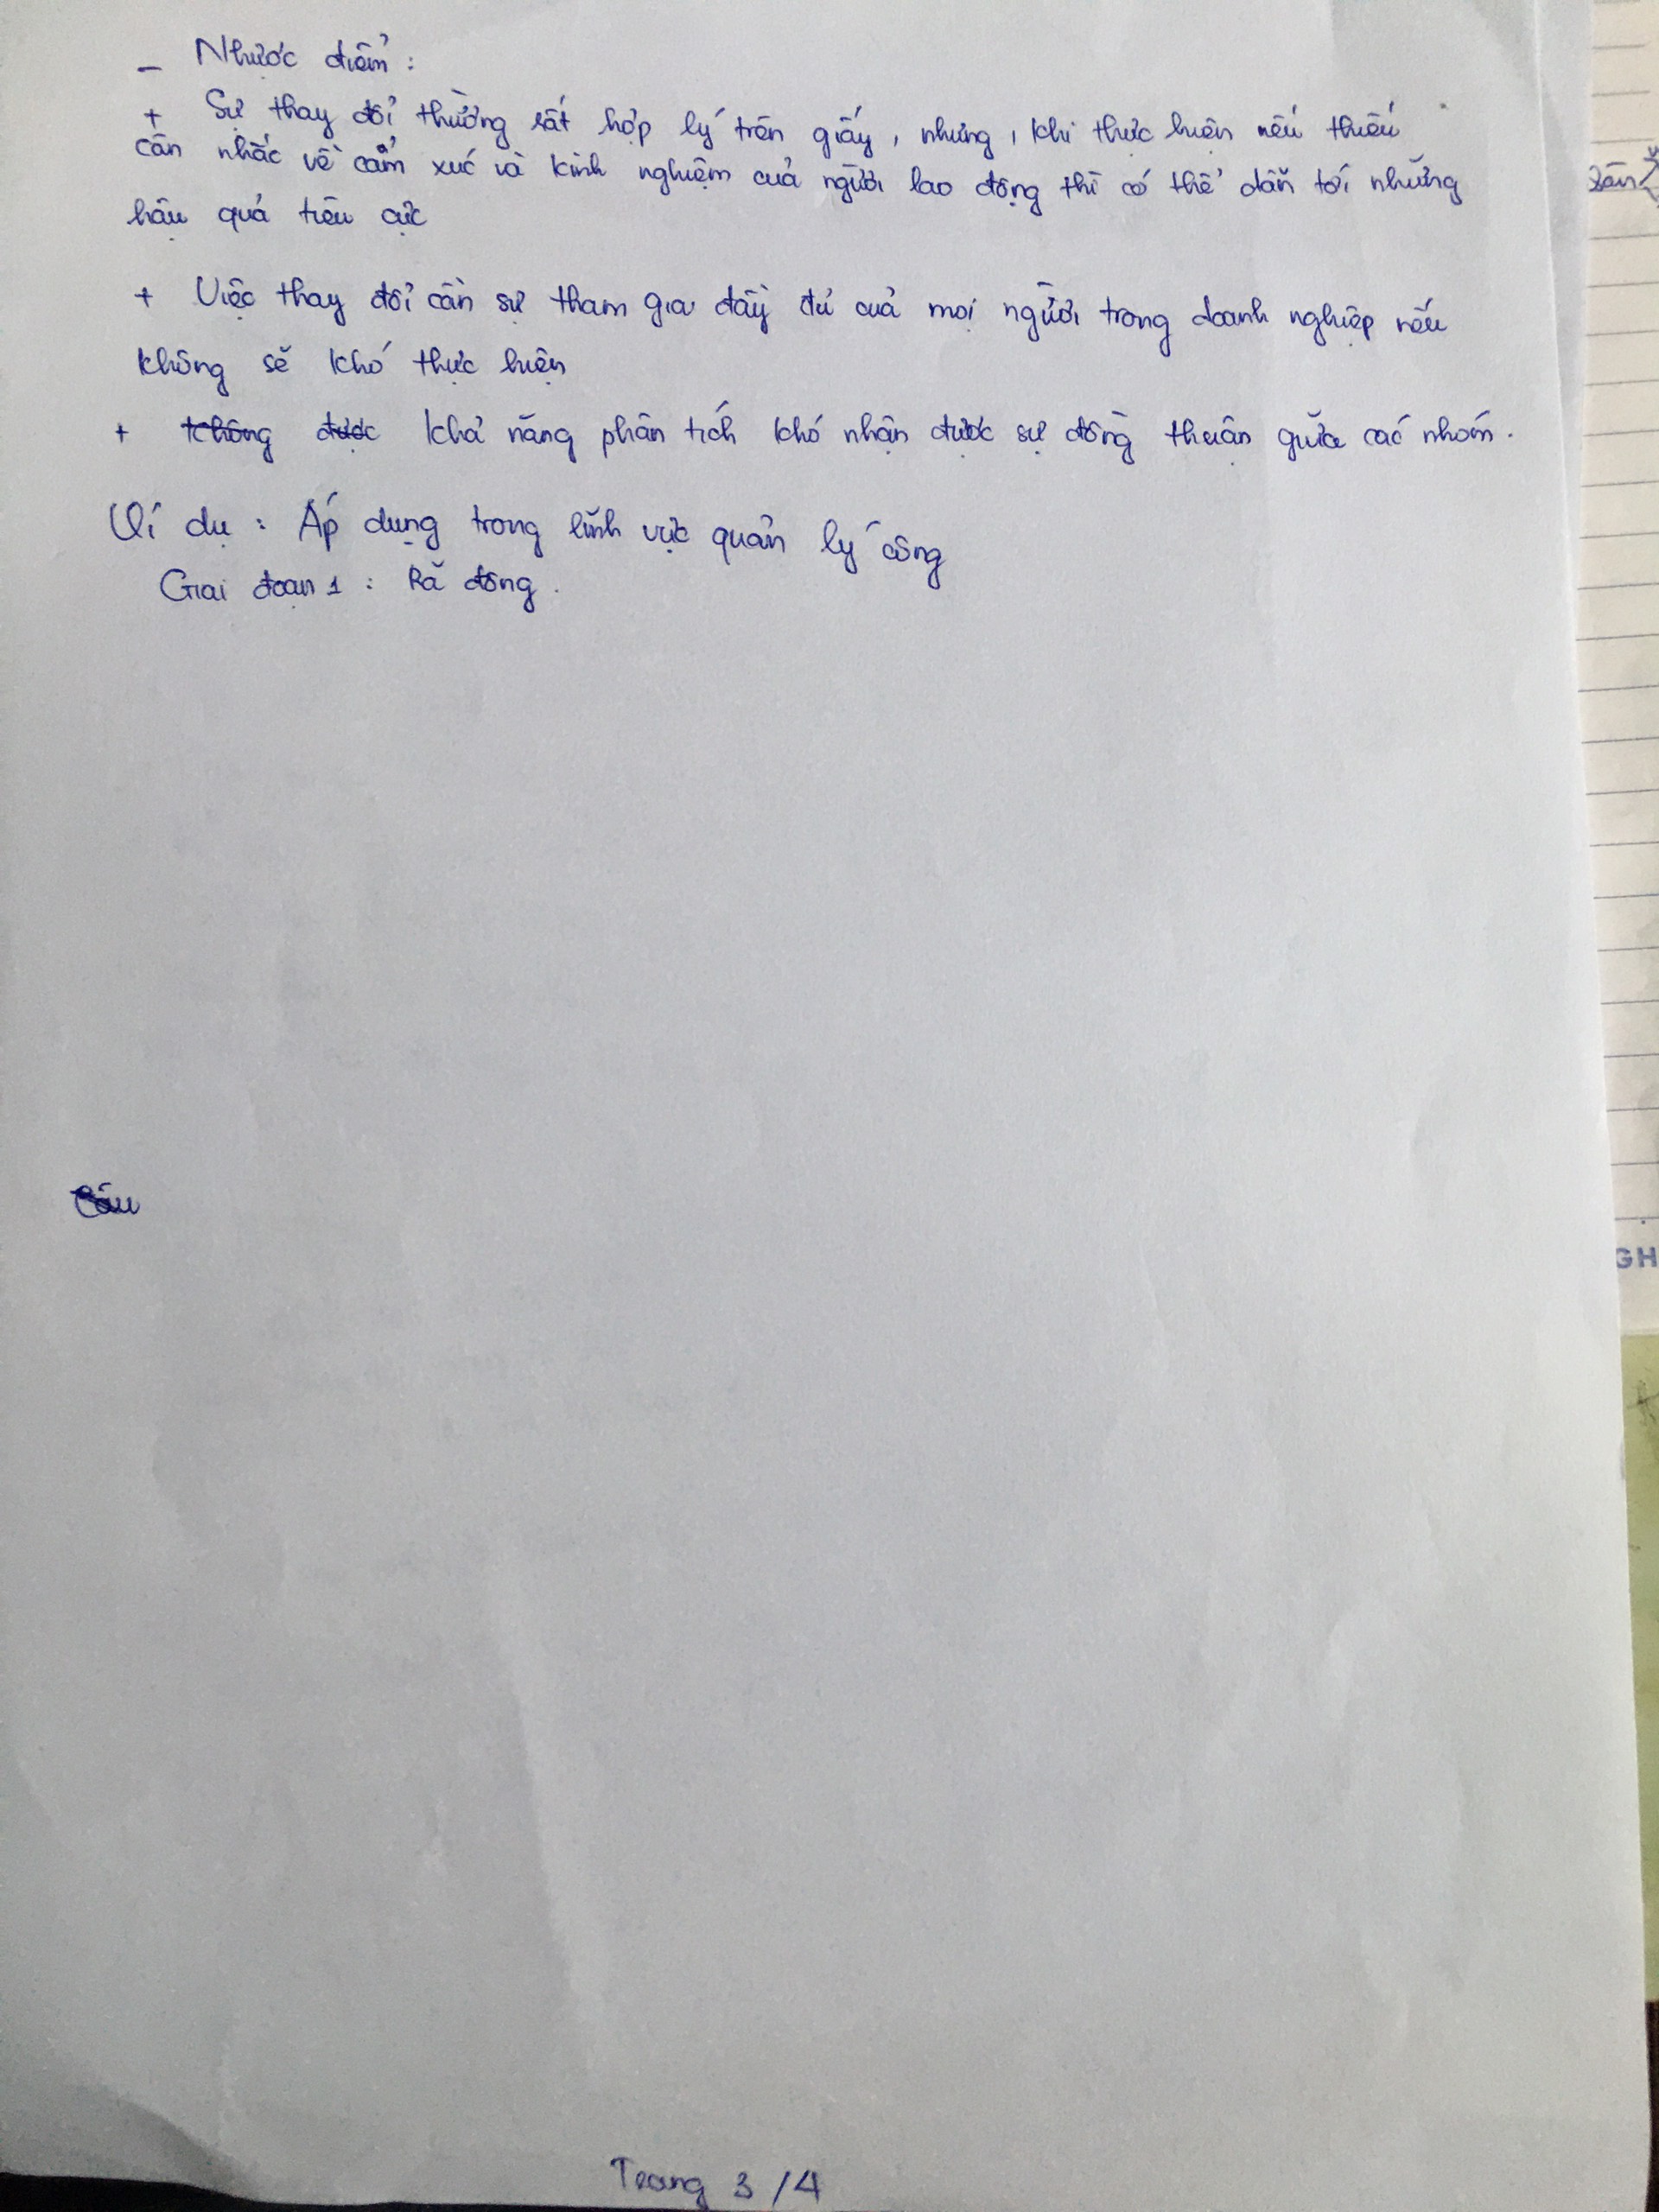 - Nhược điểm :
+ Sự thay đổi thường rất hợp lý trên giấy, nhưng, khi thực hiện nếu thiếu
cân nhắc về cảm xúc và kinh nghiệm của người lao động thì có thể dẫn tới những
hậu quả tiêu cực
+ Việc thay đổi cần sự tham gia đầy đủ của mọi người trong doanh nghiệp nếu
không sẽ khó thực hiện
+ không được khả năng phân tích khó nhận được sự đồng thuận giữa các nhóm.
Ví dụ : Áp dụng trong lĩnh vực quản lý công
Giai đoạn 1 : Rã đông.
Câu
GH
Trang 3/4